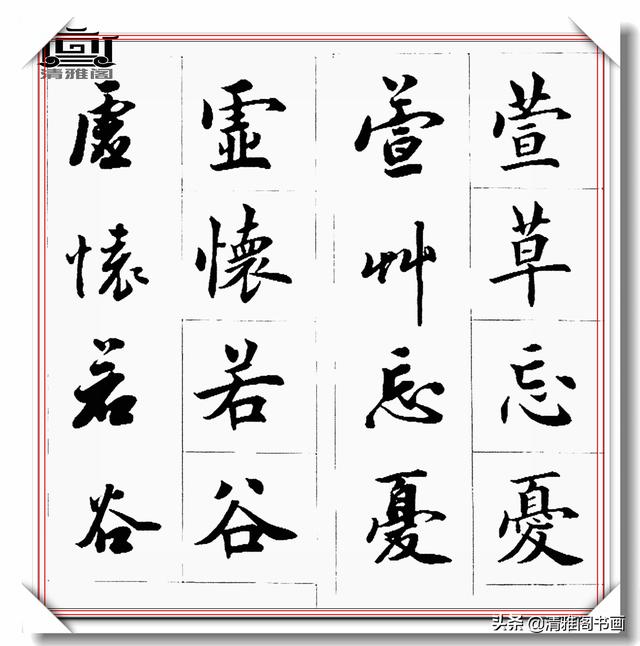 萱草忘憂
萱艸忘憂
虛懷若谷
虛懷若谷
清雅阁
头条 @清雅阁书画